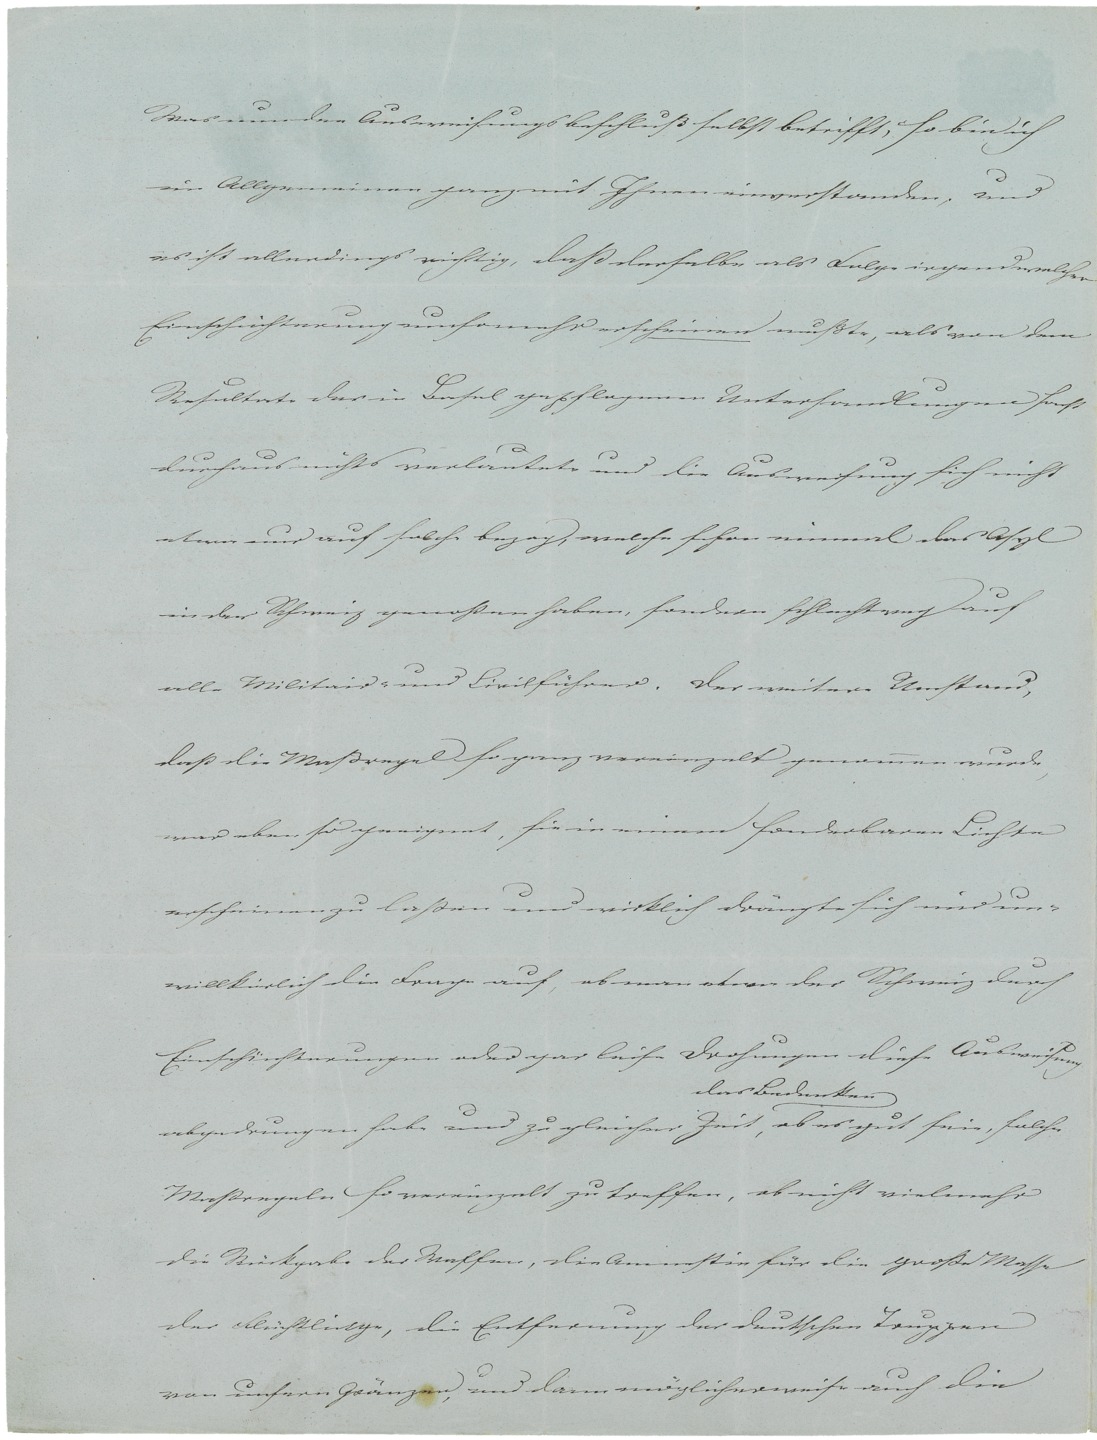 Was nun den Ausweisungsbeschluß selbst betrifft, so bin ich
im Allgemeinen ganz mit Ihnen einverstanden, und
es ist allerdings richtig, daß derselbe als Folge irgend welcher
Einschüchterung umsomehr erscheinen mußte, als von dem
Resultate der in Basel gepflogenen Unterhandlungen sonst
durchaus nichts verlautete und die Ausweisung sich nicht
etwa nur auf solche bezog, welche schon einmal das Asyl
in der Schweiz genoßen haben, sondern schlechtweg auf
alle Militair- und Civilführer. Der weitere Umstand,
daß die Maßregel so ganz vereinzelt genommen wurde,
war eben so geeignet, sie in einem sonderbaren Lichte
erscheinen zu laßen und wirklich drängte sich mir un-
willkürlich die Frage auf, ob man etwa der Schweiz durch
Einschüchterungen oder gar leise Drohungen diese Ausweisung
das Bedenken
abgedrungen habe und zu gleicher Zeit, ob es gut sein, solche
Maßregeln so vereinzelt zu treffen, ob nicht vielmehr
die Rückgabe der Waffen, die Amnestie für die große Masse
der Flüchtlinge, die Entfernung der deutschen Truppen
von unsern Gränzen, und dann möglicherweise auch die